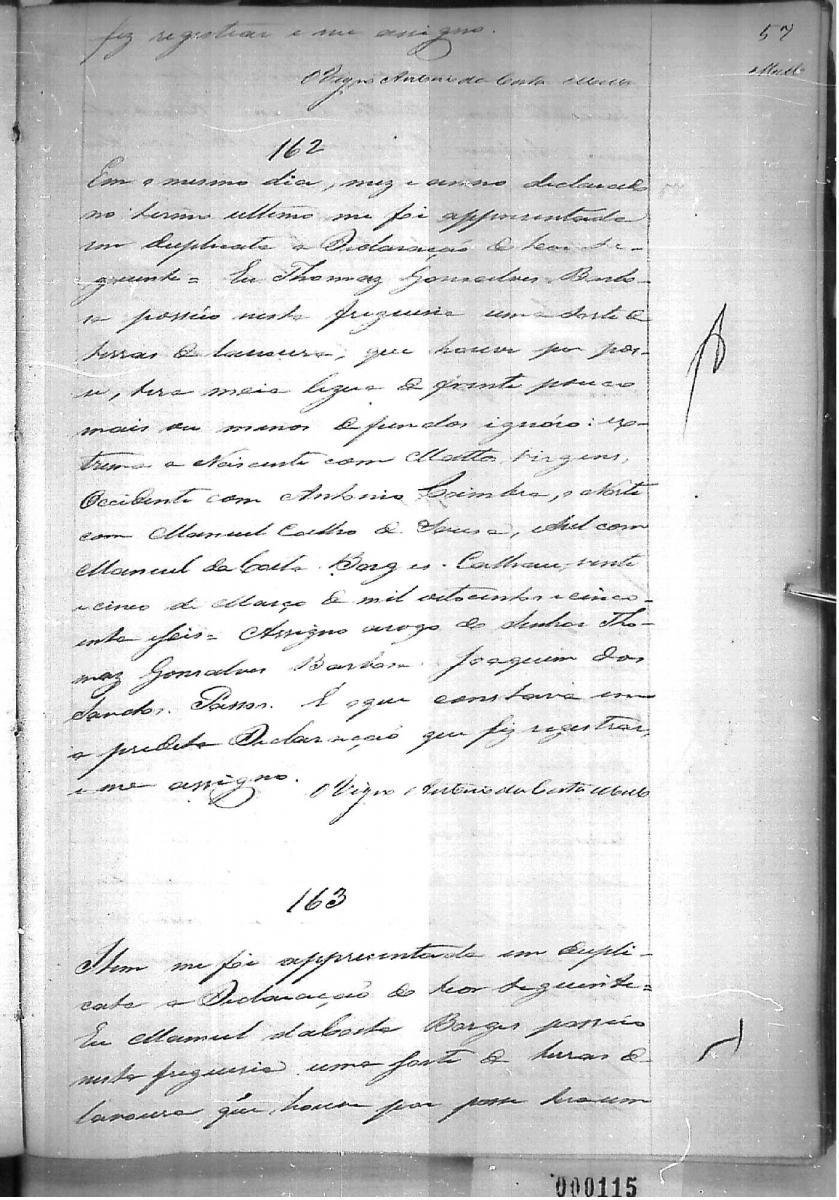 fez registrar e me assigno.
57
O Vigrº Antonio da Costa Mello
Mello
162
Em o mesmo dia, mez e anno declarado
no termo ultimo me foi appresentada
em duplicata a Declaração do teor se-
guinte = Eu Thomaz Gonsalves Barbo-
sa possúo nesta freguesia uma sorte de
terras de lavoura, que houve por pos-
se, tera meia legua de frente pouco
mais ou menos de fundos ignóro: ex-
trema a Nascente com Mattos virgens,
Occidente com Antonio Coimbra, o Norte
com Manuel Coelho de Sousa, e Sul com
Manuel da Costa Borges. Calhau, vinte
e cinco de Março de mil oitocentos e cinco-
enta e seis = Assigno arogo do Senhor Tho-
maz Gonsalves Barbosa. Joaquim dos
Sandos Passos. É oque constava em
a predita Declaração que fiz registrar,
e me assigno.
O Vigrº Antonio da Costa Mello
163
Item me foi appresentada em dupli-
cata a Declaração do teor seguinte =
Eu Manuel da Costa Borges possúo
nesta freguesia uma sorte de terras de
lavoura que houve por posse tera um
000115